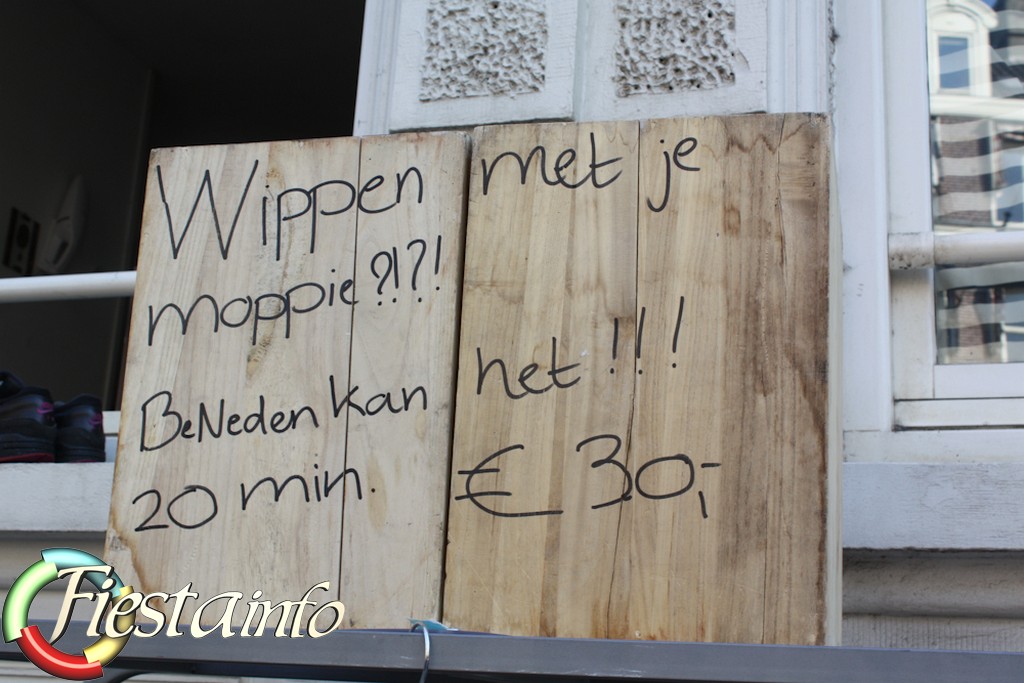 Wippen met je
moppie?!?!
BeNeden kan het!!!
20 min. € 30,-
Fiestainfo